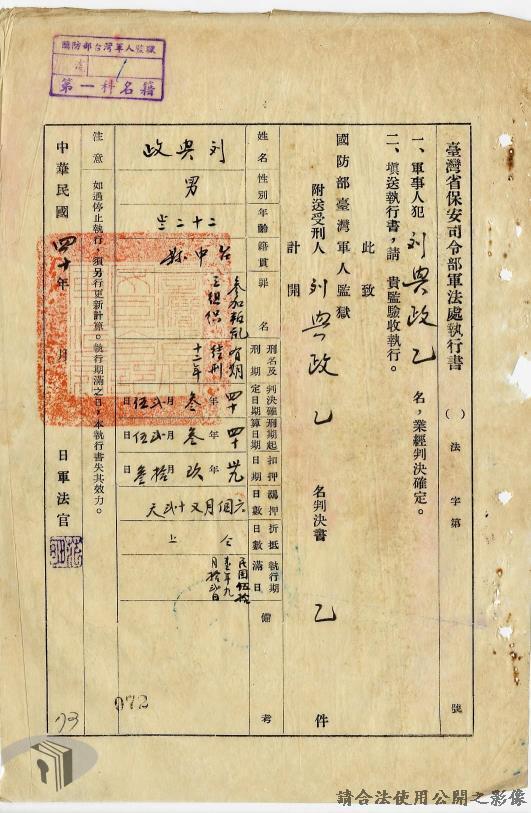 國防部台灣軍人監獄
第一科名籍
臺灣省保安司令部軍法處執行書
(　)法字第　　號
一、軍事人犯 刘興政 乙 名，業經判決確定。
二、填送執行書，請 貴監驗收執行。
此致
國防部臺灣軍人監獄
附送受刑人 刘興政 乙 名判決書 乙 件
計開
姓名 性別 年齡 籍貫 罪名 刑名及刑期 判決確定日期 刑期起算日期 扣押日期 羈押日數 折抵日數 執行期滿日 備考
刘興政
男
二十二
台中縣
參加叛亂之組織
有期徒刑十二年
四十年叁月弍伍日
四十年叁月弍伍日
卅九年玖月拾叁日
六個月又十弍天
仝上
民國伍拾壹年九月拾弍日
注意 如過停止執行，須另行更新計算。執行期滿之日，本執行書失其效力。
中華民國四十年　月　日軍法官
072
73
請合法使用公開之影像